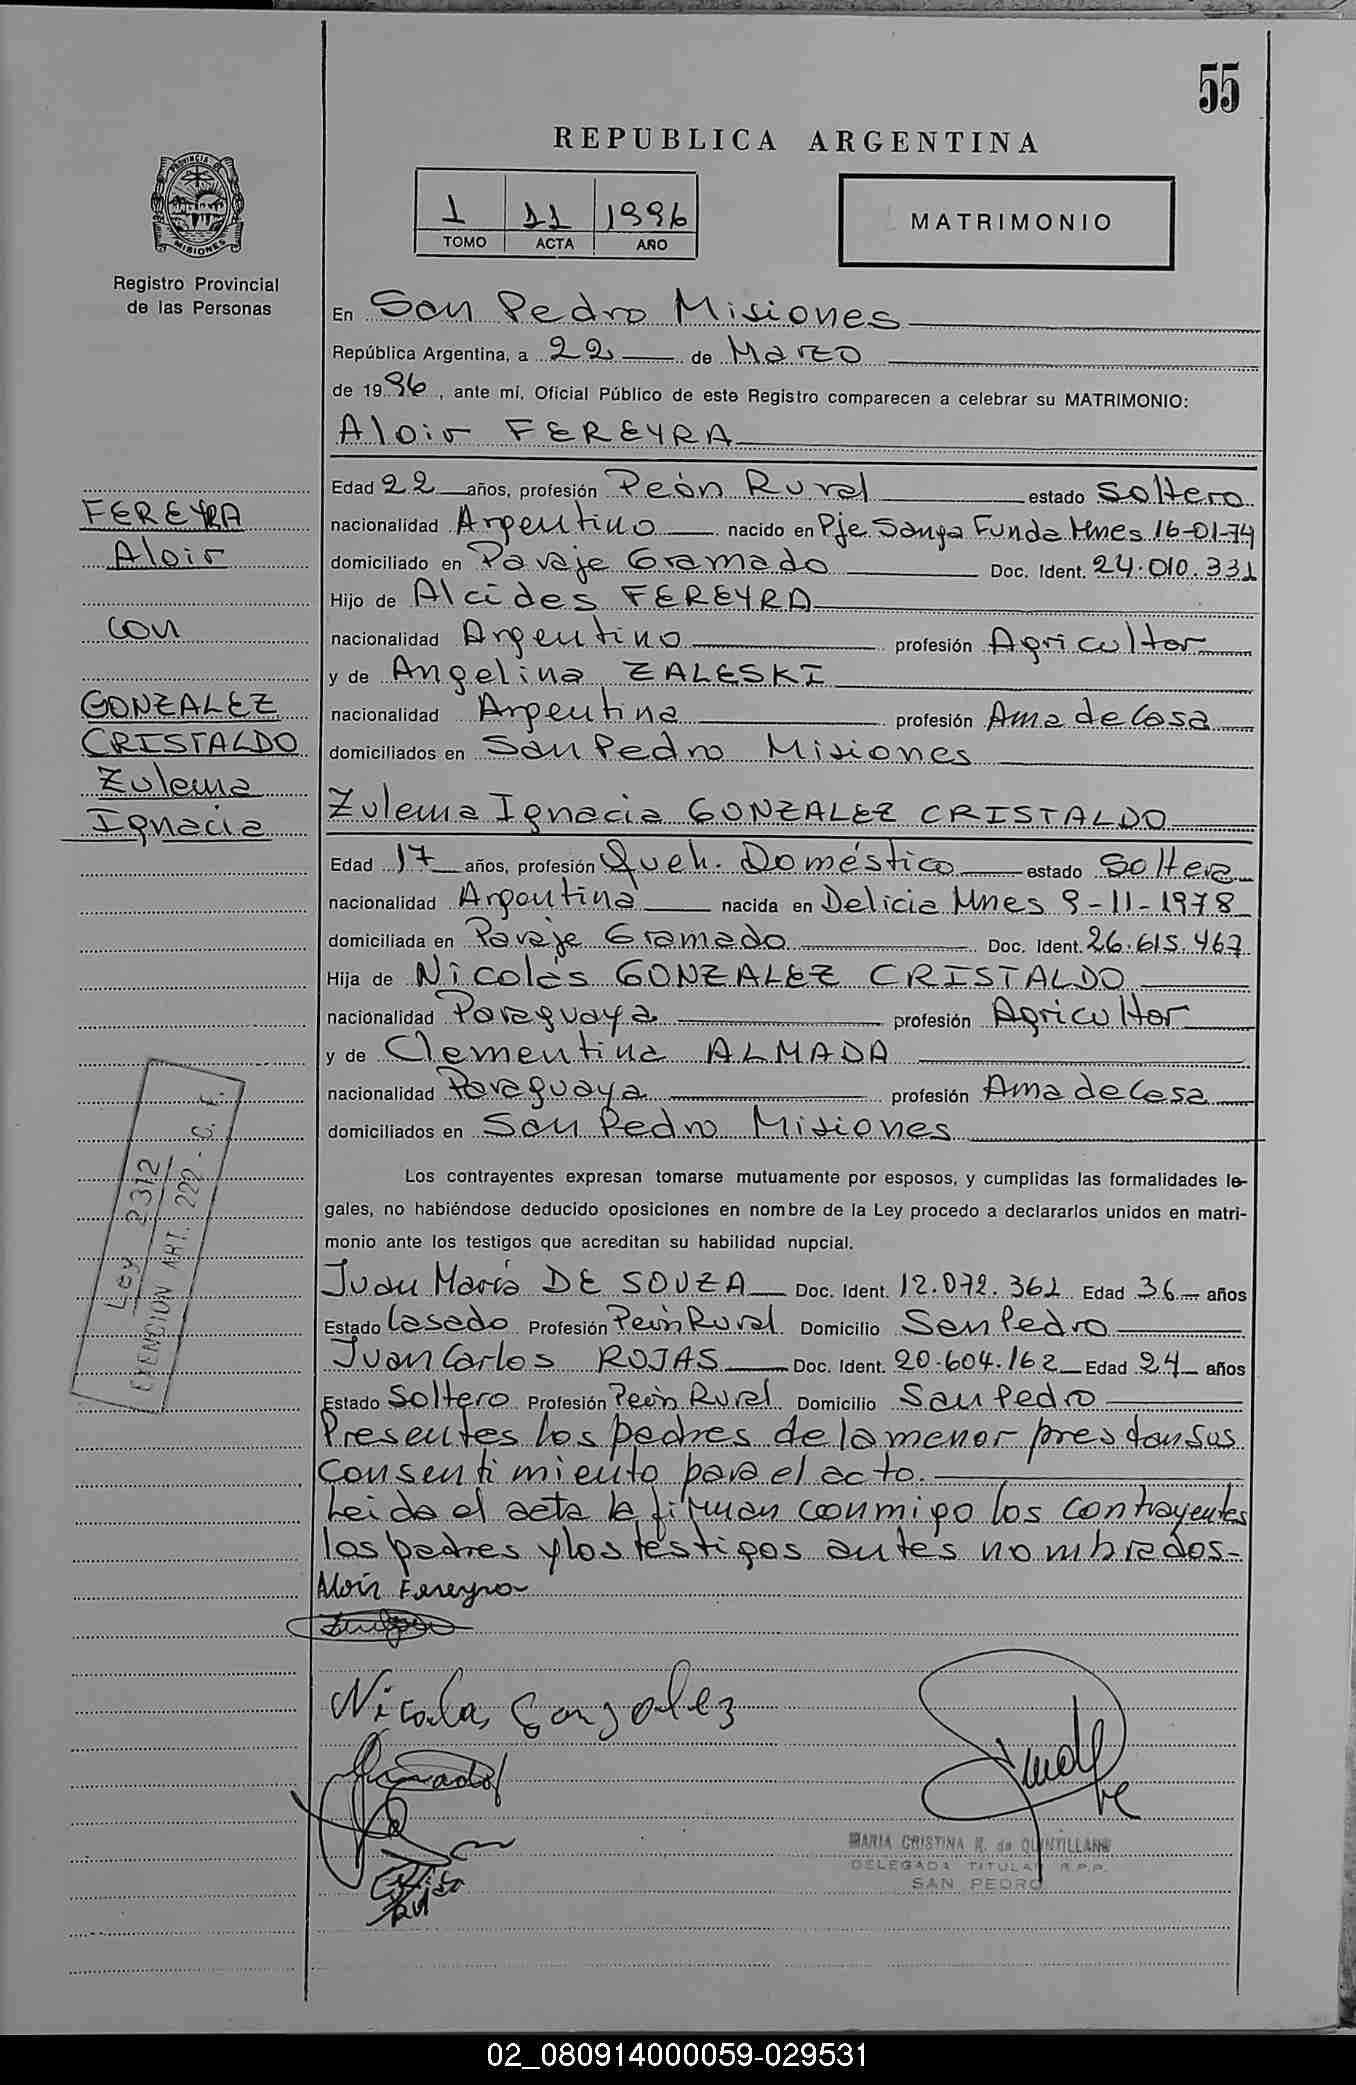 55
REPUBLICA ARGENTINA
1 11 1996
TOMO ACTA AÑO
MATRIMONIO
PROVINCIA DE MISIONES
Registro Provincial
de las Personas
En San Pedro Misiones
República Argentina, a 22 de Marzo
de 1996, ante mí, Oficial Público de este Registro comparecen a celebrar su MATRIMONIO:
Aloir FEREYRA
Edad 22 años, profesión Peón Rural estado Soltero
nacionalidad Argentino nacido en Pje. Sanga Funda Mnes 16-01-74
domiciliado en Paraje Gramado Doc. Ident. 24.010.331
Hijo de Alcides FEREYRA
nacionalidad Argentino profesión Agricultor
y de Angelina ZALESKI
nacionalidad Argentina profesión Ama de Casa
domiciliados en San Pedro Misiones
Zulema Ignacia GONZALEZ CRISTALDO
Edad 17 años, profesión Queh. Doméstico estado Soltera
nacionalidad Argentina nacida en Delicia Mnes 9-11-1978
domiciliada en Paraje Gramado Doc. Ident. 26.615.467
Hija de Nicolás GONZALEZ CRISTALDO
nacionalidad Paraguaya profesión Agricultor
y de Clementina ALMADA
nacionalidad Paraguaya profesión Ama de Casa
domiciliados en San Pedro Misiones
Los contrayentes expresan tomarse mutuamente por esposos, y cumplidas las formalidades le-
gales, no habiéndose deducido oposiciones en nombre de la Ley procedo a declararlos unidos en matri-
monio ante los testigos que acreditan su habilidad nupcial.
Juan María DE SOUZA Doc. Ident. 12.072.361 Edad 36 años
Estado Casado Profesión Peón Rural Domicilio San Pedro
Juan Carlos ROJAS Doc. Ident. 20.604.162 Edad 24 años
Estado Soltero Profesión Peón Rural Domicilio San Pedro
Presentes los padres de la menor prestan sus
consentimiento para el acto.
Leida el acta la firman conmigo los contrayentes
los padres y los testigos antes nombrados.-
Aloir Fereyra
Nicolas Gonzalez
MARIA CRISTINA R. de QUINTILLANO
DELEGADA TITULAR R.P.P.
SAN PEDRO
FEREYRA
Aloir
con
GONZALEZ
CRISTALDO
Zulema
Ignacia
Ley 2312
EXENCION ART. 222 - C. F.
02_080914000059-029531